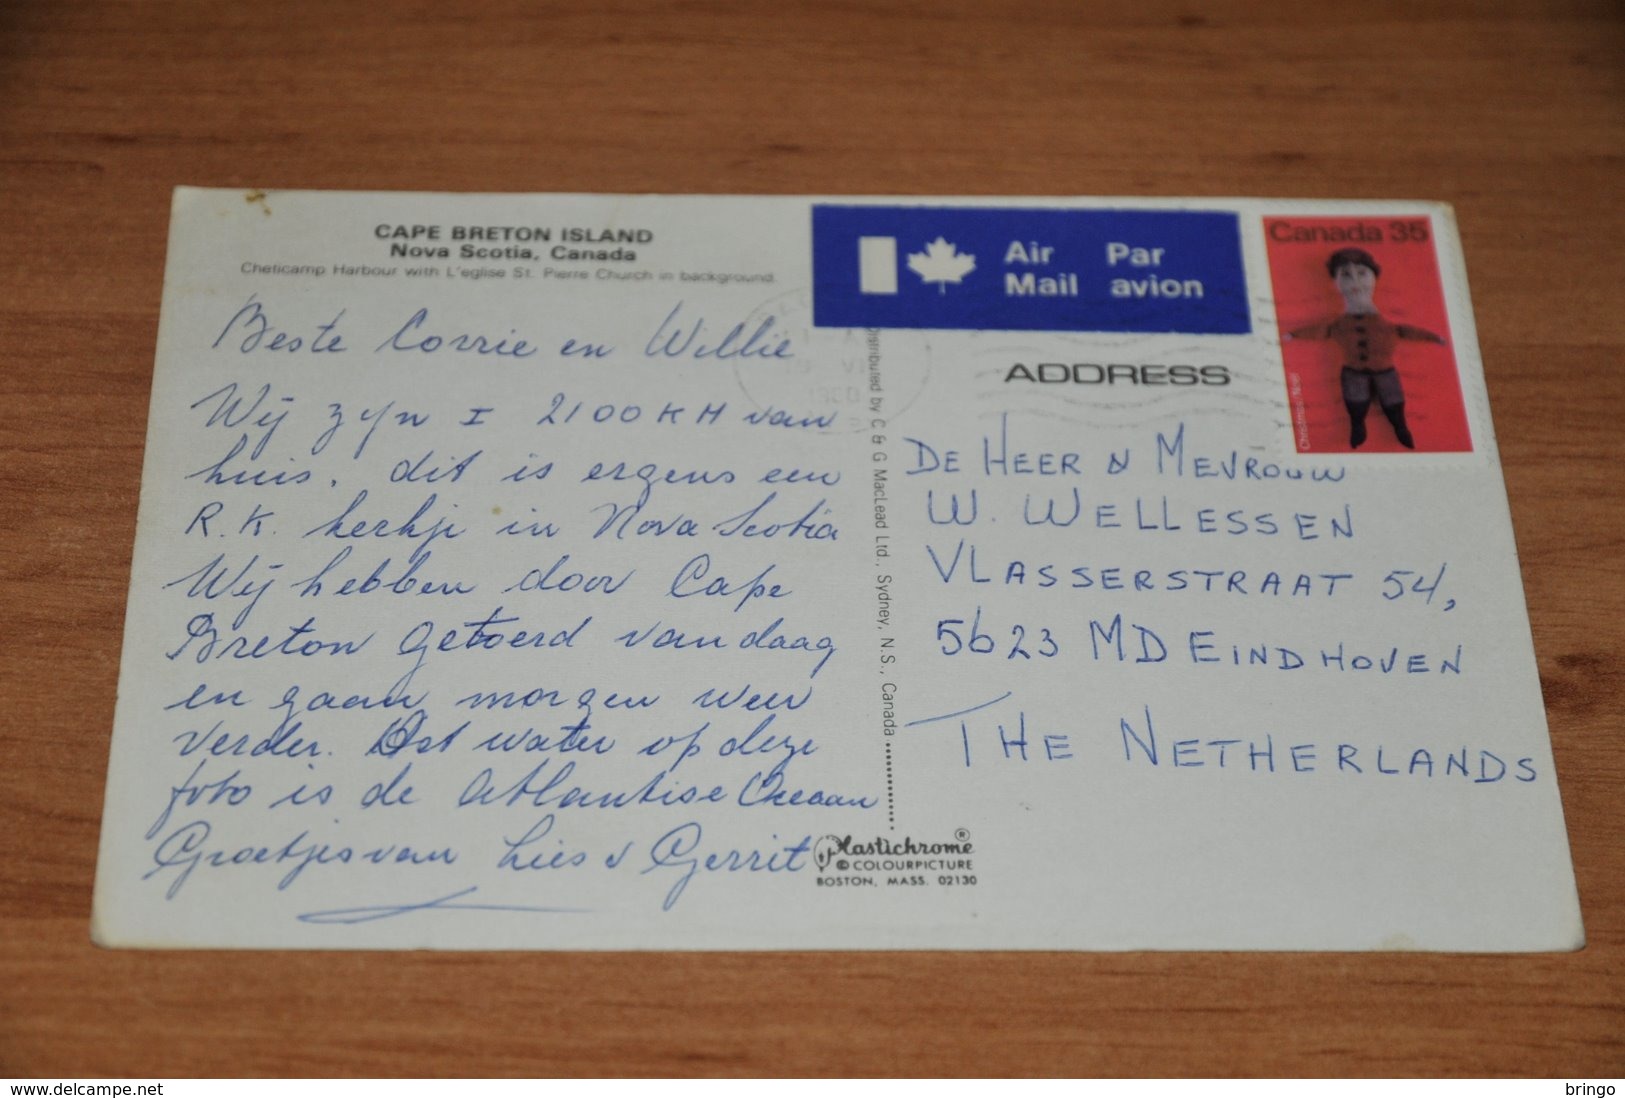 CAPE BRETON ISLAND
Nova Scotia, Canada
Cheticamp Harbour with L'eglise St. Pierre Church in background.
Beste Corrie en Willie
Wij zyn ± 2100 KM van
huis. dit is ergens een
R.K. kerkje in Nova Scotia
Wij hebben door Cape
Breton getoerd vandaag
en gaan morgen weer
verder. Het water op deze
foto is de Atlantise Oceaan
Groetjes van Lies & Gerrit
Distributed by C & G MacLead Ltd., Sydney, N.S., Canada
Plastichrome ®
© COLOURPICTURE
BOSTON, MASS. 02130
Air Par
Mail avion
Canada 35
Christmas/Noël
ADDRESS
DE HEER & MEVROUW
W. WELLESSEN
VLASSERSTRAAT 54,
5623 MD EINDHOVEN
THE NETHERLANDS
www.delcampe.net
bringo